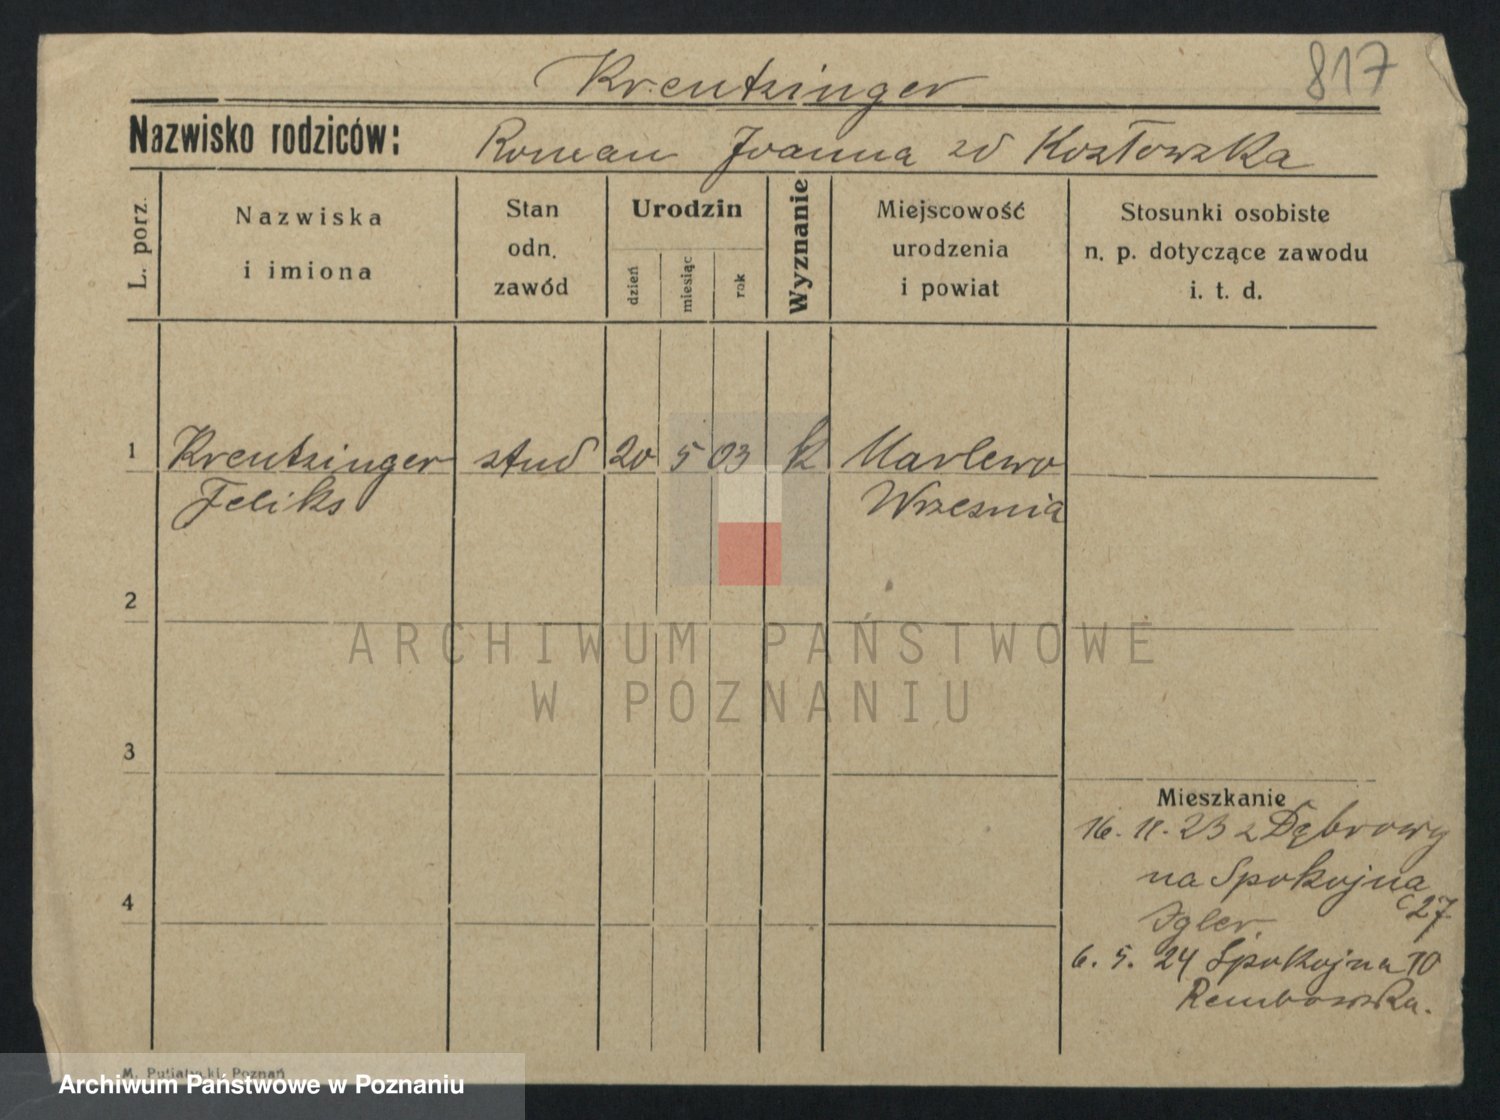 817
Kreutzinger
Nazwisko rodziców: Roman Joanna zd Kozłowska
L. porz.
Nazwiska
i imiona
Stan
odn.
zawód
Urodzin
dzień
miesiąc
rok
Wyznanie
Miejscowość
urodzenia
i powiat
Stosunki osobiste
n. p. dotyczące zawodu
i. t. d.
1 Kreutzinger stud 20 5 03 k Marlewo
Feliks Wrzesnia
2
ARCHIWUM PAŃSTWOWE
W POZNANIU
3
Mieszkanie
16. 11. 23 z Dębrowy
na Spokojna
27
Igler.
4
6. 5. 24 Spokojna 10
Rembowska.
M. Poznań
Archiwum Państwowe w Poznaniu